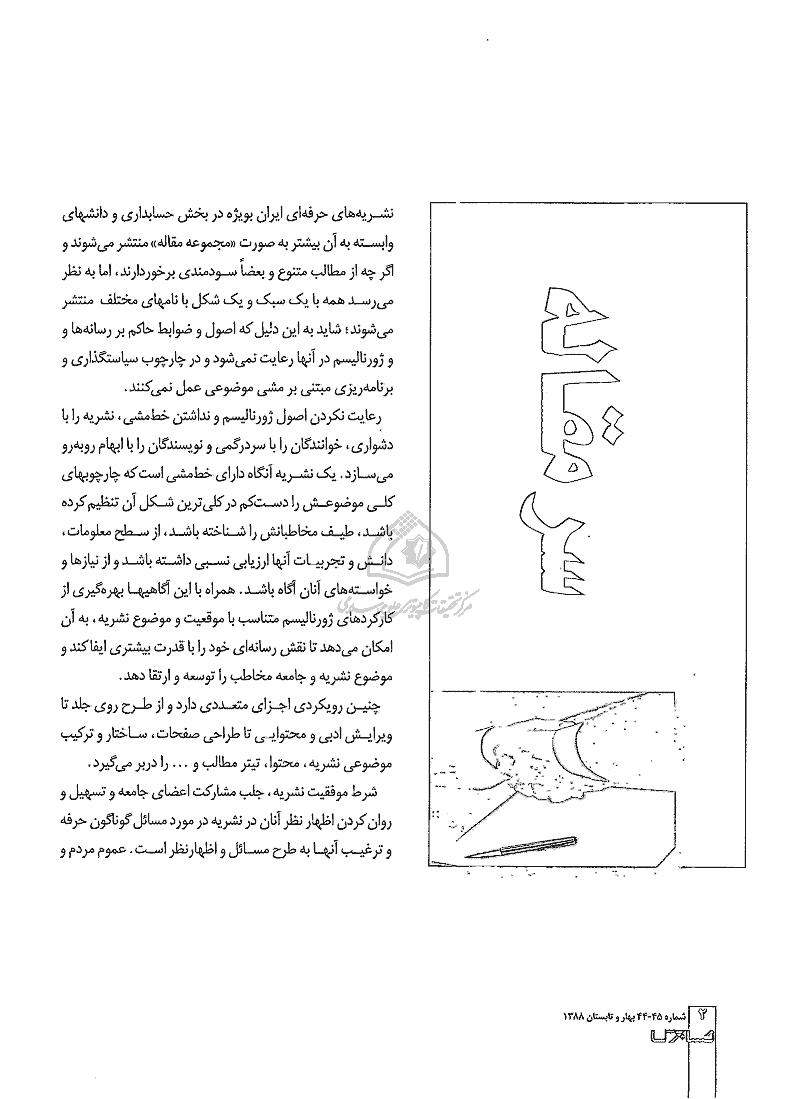 سر مقاله
نشریه‌های حرفه‌ای ایران بویژه در بخش حسابداری و دانشهای
وابسته به آن بیشتر به صورت «مجموعه مقاله» منتشر می‌شوند و
اگر چه از مطالب متنوع و بعضاً سودمندی برخوردارند، اما به نظر
می‌رسد همه با یک سبک و یک شکل با نامهای مختلف منتشر
می‌شوند؛ شاید به این دلیل که اصول و ضوابط حاکم بر رسانه‌ها و
و ژورنالیسم در آنها رعایت نمی‌شود و در چارچوب سیاستگذاری و
برنامه‌ریزی مبتنی بر مشی موضوعی عمل نمی‌کنند.
رعایت نکردن اصول ژورنالیسم و نداشتن خط‌مشی، نشریه را با
دشواری، خوانندگان را با سردرگمی و نویسندگان را با ابهام روبه‌رو
می‌سازد. یک نشریه آنگاه دارای خط‌مشی است که چارچوبهای
کلی موضوعش را دست‌کم در کلی‌ترین شکل آن تنظیم کرده
باشد، طیف مخاطبانش را شناخته باشد، از سطح معلومات،
دانش و تجربیات آنها ارزیابی نسبی داشته باشد و از نیازها و
خواسته‌های آنان آگاه باشد. همراه با این آگاهیها بهره‌گیری از
کارکردهای ژورنالیسم متناسب با موقعیت و موضوع نشریه، به آن
امکان می‌دهد تا نقش رسانه‌ای خود را با قدرت بیشتری ایفا کند و
موضوع نشریه و جامعه مخاطب را توسعه و ارتقا دهد.
چنین رویکردی اجزای متعددی دارد و از طرح روی جلد تا
ویرایش ادبی و محتوایی تا طراحی صفحات، ساختار و ترکیب
موضوعی نشریه، محتوا، تیتر مطالب و ... را دربر می‌گیرد.
شرط موفقیت نشریه، جلب مشارکت اعضای جامعه و تسهیل و
روان کردن اظهار نظر آنان در نشریه در مورد مسائل گوناگون حرفه
و ترغیب آنها به طرح مسائل و اظهارنظر است. عموم مردم و
۲
شماره ۴۵-۴۴ بهار و تابستان ۱۳۸۸